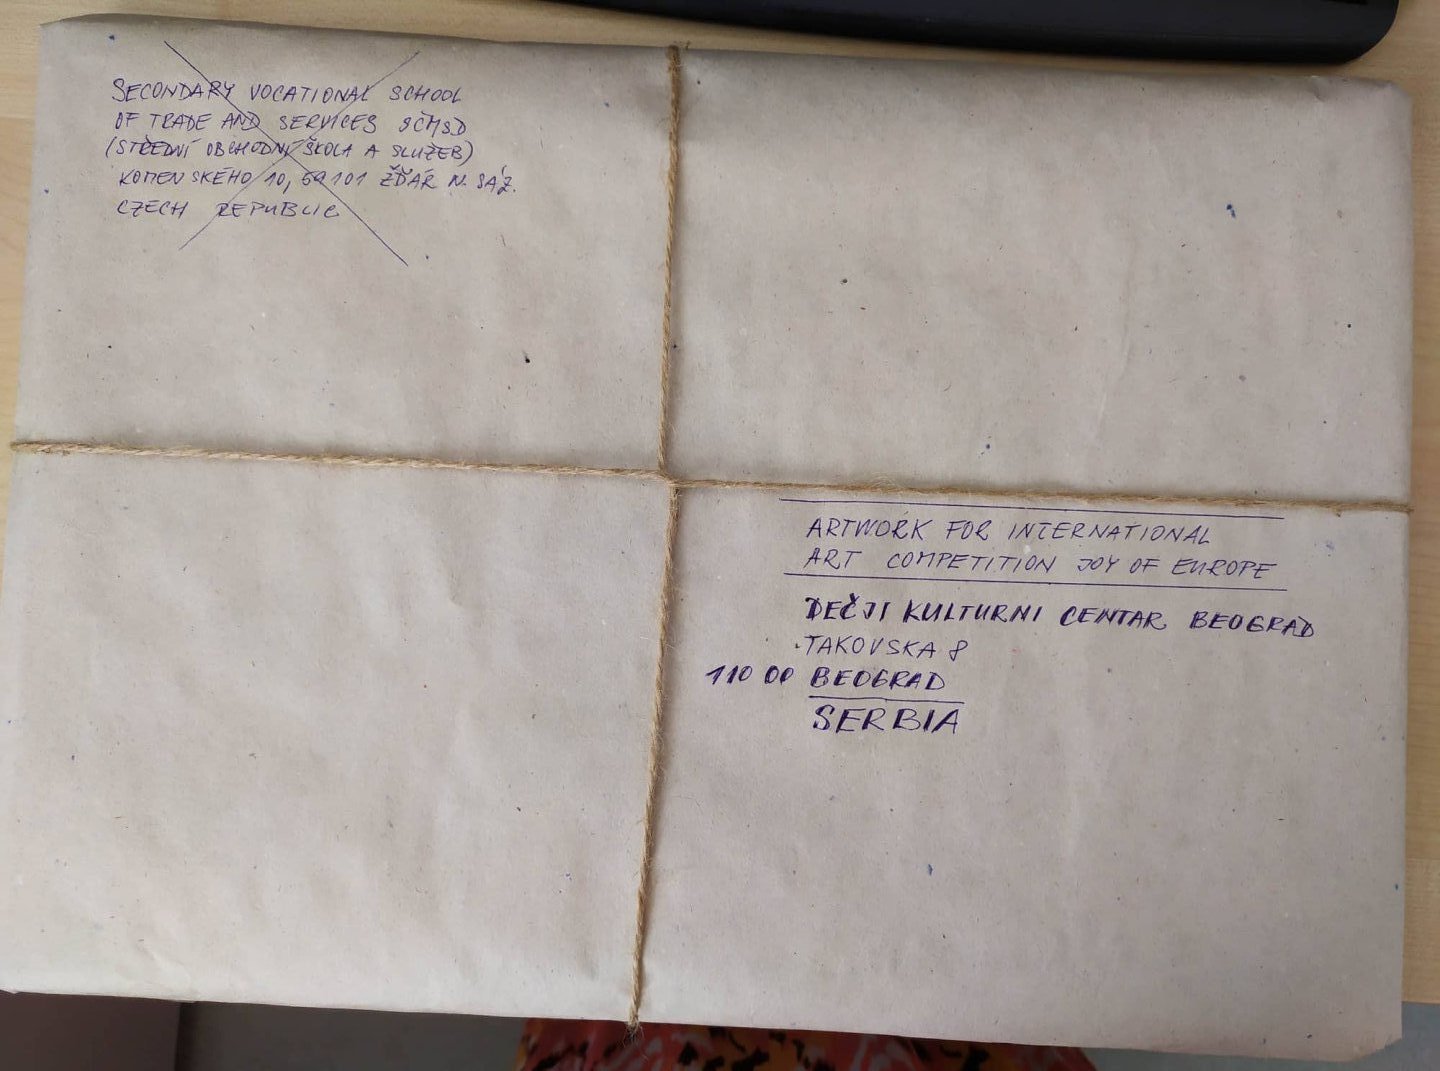 SECONDARY VOCATIONAL SCHOOL
OF TRADE AND SERVICES SČMSD
(STŘEDNÍ OBCHODNÍ ŠKOLA A SLUŽEB)
KOMENSKÉHO 10, 59101 ŽĎÁR N. SÁZ.
CZECH REPUBLIC
ARTWORK FOR INTERNATIONAL
ART COMPETITION JOY OF EUROPE
DEČJI KULTURNI CENTAR BEOGRAD
TAKOVSKA 8
110 00 BEOGRAD
SERBIA